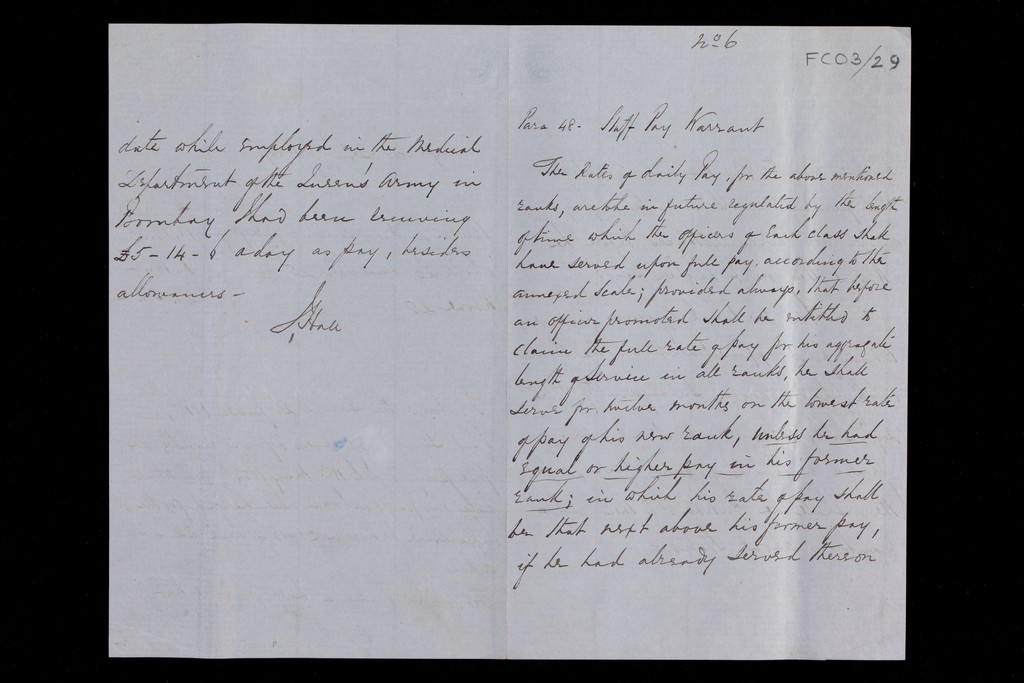 date while employed in the Medical
Department of the Queen's Army in
Bombay I had been receiving
£5-14-6 a day as pay, besides
allowances-
J Hall
No 6
FCO3/29
Para 48- Staff Pay Warrant
The Rates of daily Pay, for the above mentioned
ranks, are to be in future regulated by the length
of time which the officers of Each Class shall
have served upon full pay, according to the
annexed Scale; provided always, that before
an officer promoted shall be entitled to
claim the full rate of pay for his aggregate
length of Service in all ranks, he shall
serve for twelve months on the lowest rate
of pay of his new rank, unless he had
equal or higher pay in his former
rank; in which his rate of pay shall
be that next above his former pay,
if he had already served thereon